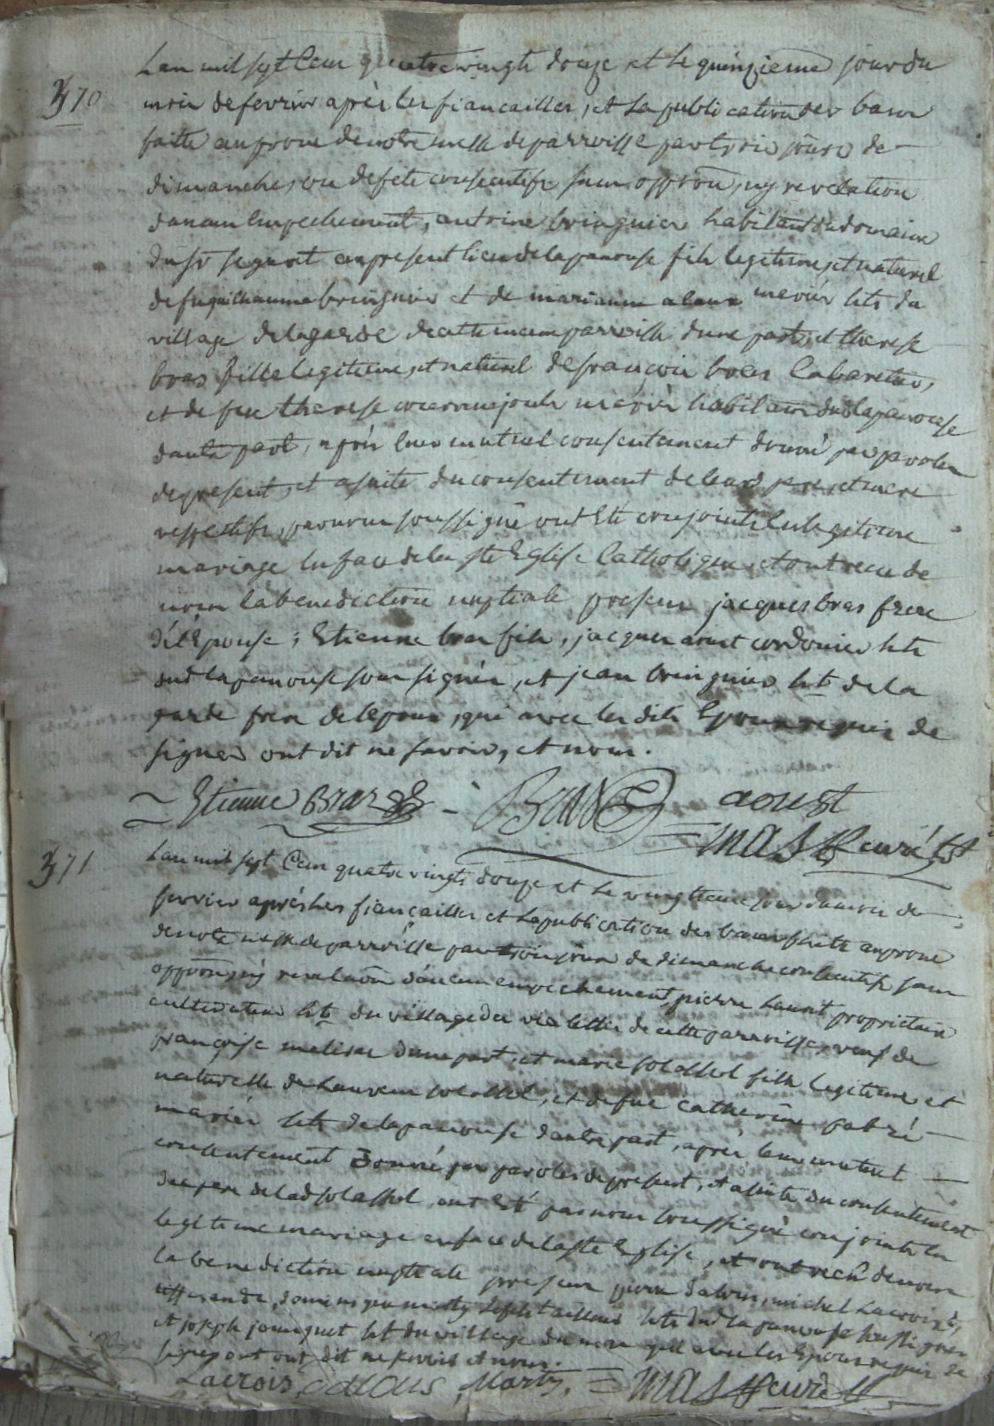 370
Lan mil sept Cent quatre vingts douze et le quinzieme jour du
mois de fevrier après les fiancailles, et la publication des bans
faite au prone de notre messe de parroisse par trois jours de
dimanches ou de fete consecutifs sans oppoõn, ny revelation
daucun Empechement, antoine bringuier habitant du domaine
du st en present lieu de lapanouse fils legitime, et naturel
de feu guilhaume bringuier et de marianne mariés hts du
village de lagarde de cette meme parroisse dune part, et therese
bras fille legitime, et naturel de francois bras Cabaretier,
et de feu therese mariés habitans du lapanouse
dautre part, après leur mutuel consentement donné par paroles
de present, et a suite du consentement de leurs pere, et mere
respectifs, par nous soussigné ont Eté conjoints en legitime
mariage En face de la ste Eglise Catholique, et ont recu de
nous la benediction nuptiale presens jacques bras frere
de l'Epouse, Etienne bras fils, jacques aoust cordonier hts
dud lapanouse soussignés, et jean bringuier ht de la
garde frere de lepoux, qui avec les dits Epoux requis de
signer ont dit ne savoir, et nous.
Etienne Bras Bras aoust
mas curé
371
Lan mil sept Cent quatre vingts douze et le vingtieme jour du mois de
fevrier après les fiançailles et la publication des bans faite au prone
de notre messe de parroisse par trois jours de dimanche consecutifs sans
oppoõn, ny revelaõn d'aucun empechement, pierre proprietaire
cultivateur ht du village de cette parroisse veuf de
françoise dune part, et marie solassol fille legitime et
naturelle de Laurens solassol, et de feue Catherine fabré
mariés hts de lapanouse dautre part, après leur mutuel
consentement Donné par paroles de present, et a suite du consentement
du pere de lad solassol, ont Eté par nous soussigné conjoints en
legitime mariage en face de la ste Eglise, et ont recû de nous
la benediction nuptiale presens pierre dalous, michel Lacroix,
tisserands, tailleurs hts dud lapanouse soussignés
et joseph jouinguet ht du village du avec les Epoux requis de
signer ont dit ne savoir et nous.
Lacroix dalous Marty. mas curé